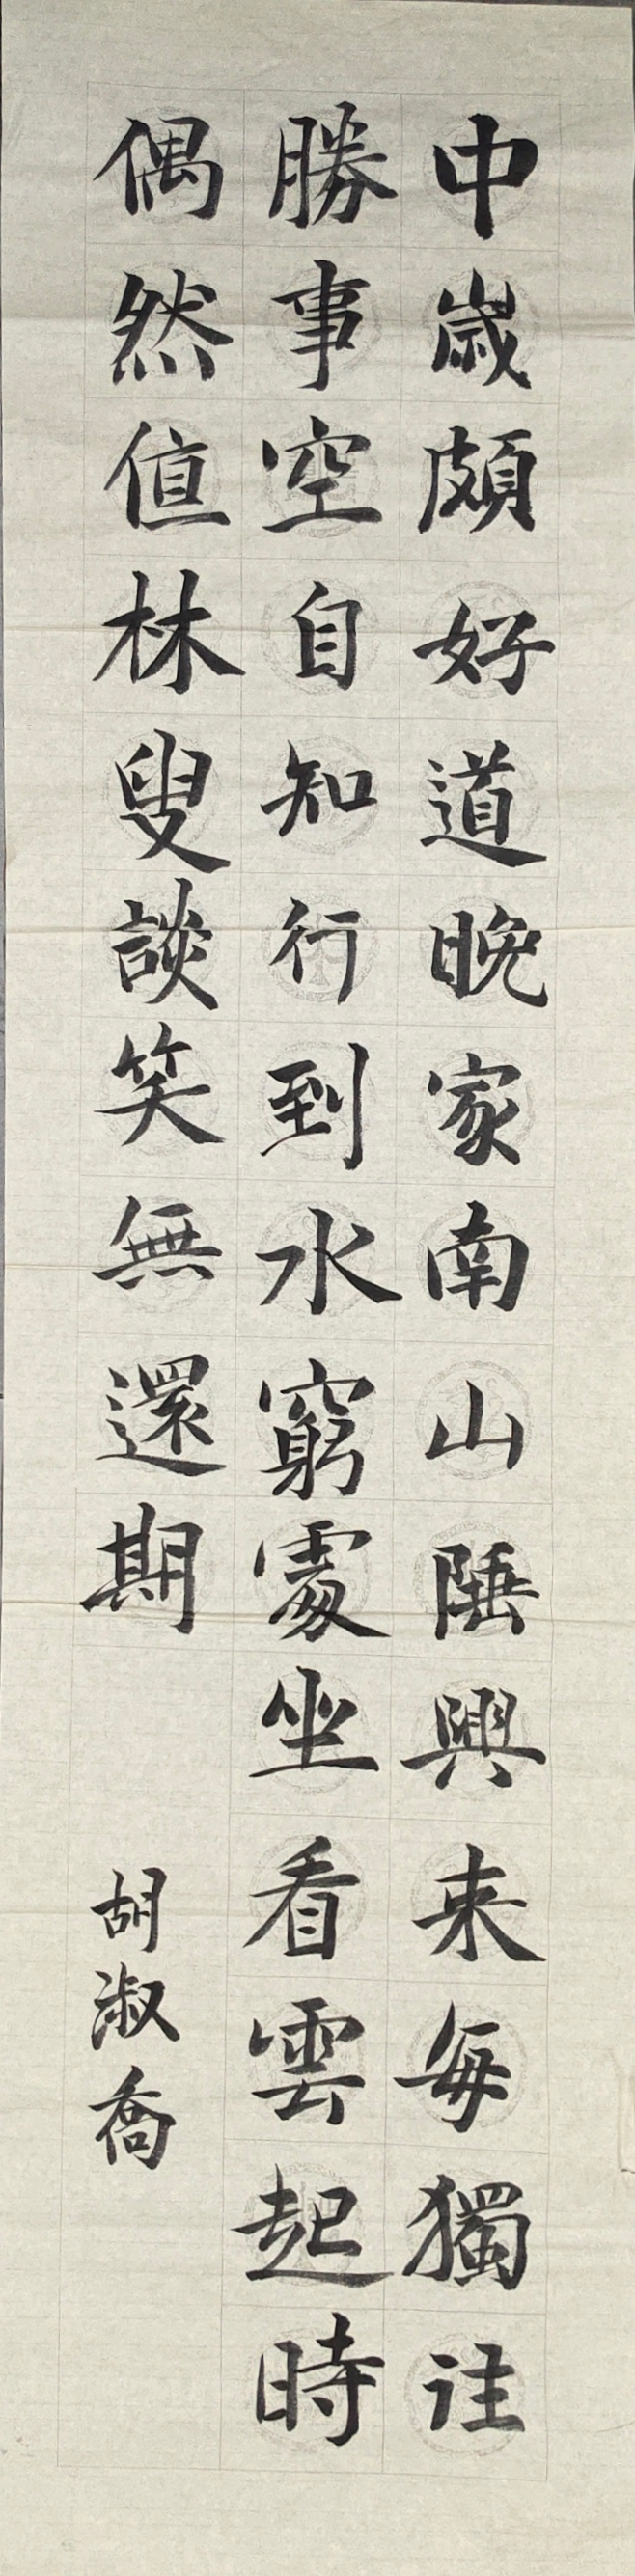 中歲頗好道晚家南山陲興来每獨往
勝事空自知行到水窮處坐看雲起時
偶然值林叟談笑無還期
胡淑喬